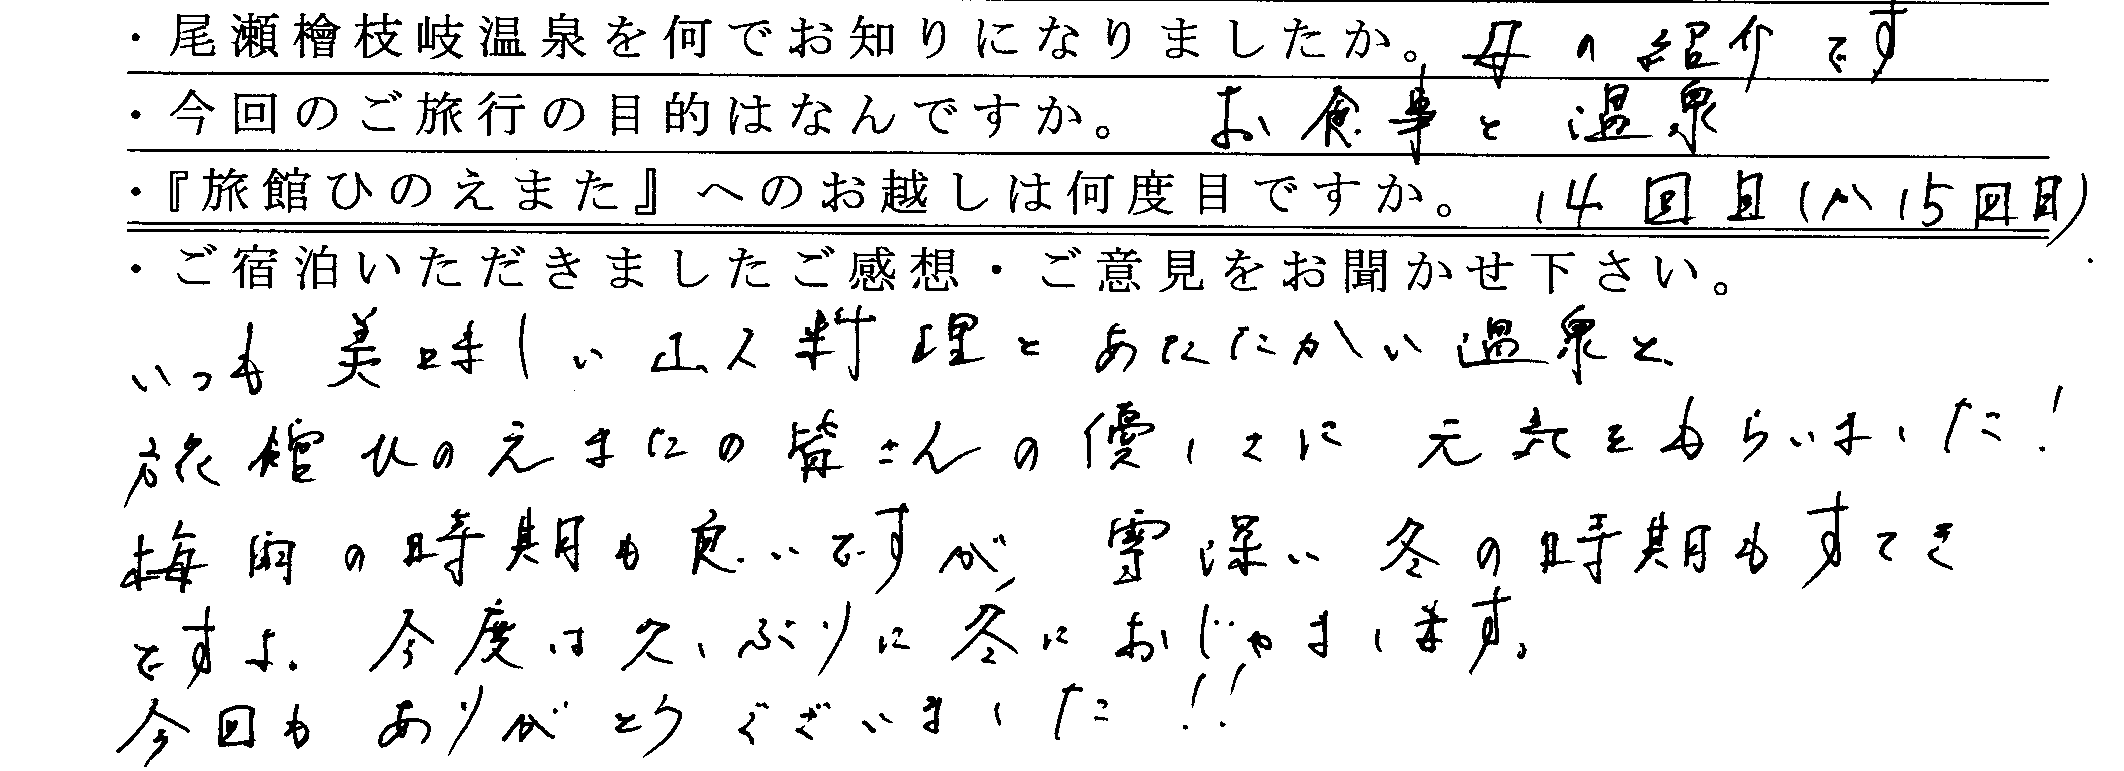 ・尾瀬檜枝岐温泉を何でお知りになりましたか。母の紹介です
・今回のご旅行の目的はなんですか。 お食事と温泉
・『旅館ひのえまた』へのお越しは何度目ですか。 14回目(か15回目)
・ご宿泊いただきましたご感想・ご意見をお聞かせ下さい。
いつも美味しい山人料理とあたたかい温泉と
旅館ひのえまたの皆さんの優しさに元気をもらいました!
梅雨の時期も良いですが、雪深い冬の時期もすてき
ですよ。今度は久しぶりに冬におじゃまします。
今回もありがとうございました!!